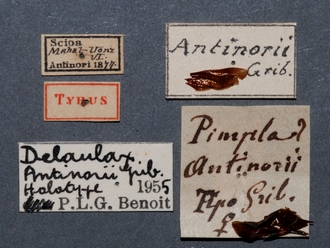 Scioa
Mahal-Uonz
VI.
Antinori 1877.
TYPUS
Delaulax
Antinorii Grib.
Holotype 1955
P.L.G. Benoit
Antinorii
Grib.
Pimpla
Antinorii
Tipo Grib.
♀